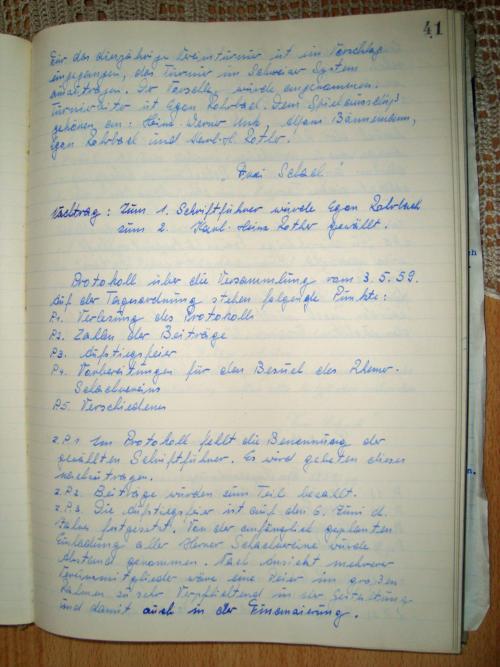 41
Für das diesjährige Vereinsturnier ist ein Vorschlag
eingegangen, das Turnier im Schweizer System
auszutragen. Der Vorschlag wurde angenommen.
Turnierleiter ist Egon Rohrbach. Dem Spielausschuß
gehören an: Heinz-Werner, Bannemann,
Egon Rohrbach und Karl-H. Rother.
Schach!
Nachtrag: Zum 1. Schriftführer wurde Egon Rohrbach
zum 2. Karl-Heinz Rother gewählt.
Protokoll über die Versammlung vom 3.5.59.
Auf der Tagesordnung stehen folgende Punkte:
P1. Verlesung des Protokolls
P2. Zahlen der Beiträge
P3. Aufstiegsfeier
P4. Vorbereitungen für den Besuch des
Schachvereins
P5. Verschiedenes
z.P.1. Im Protokoll fehlt die Benennung der
gewählten Schriftführer. Es wird gebeten dieses
nachzutragen.
z.P.2. Beiträge wurden zum Teil bezahlt.
z.P.3. Die Aufstiegsfeier ist auf den 6. Juni d.
Jahres festgesetzt. Von der anfänglich geplanten
Einladung aller Herner Schachvereine wurde
Abstand genommen. Nach Ansicht mehrerer
Vereinsmitglieder wäre eine Feier im großen
Rahmen zu sehr Verpflichtend in der Gestaltung
und damit auch in der Finanzierung.